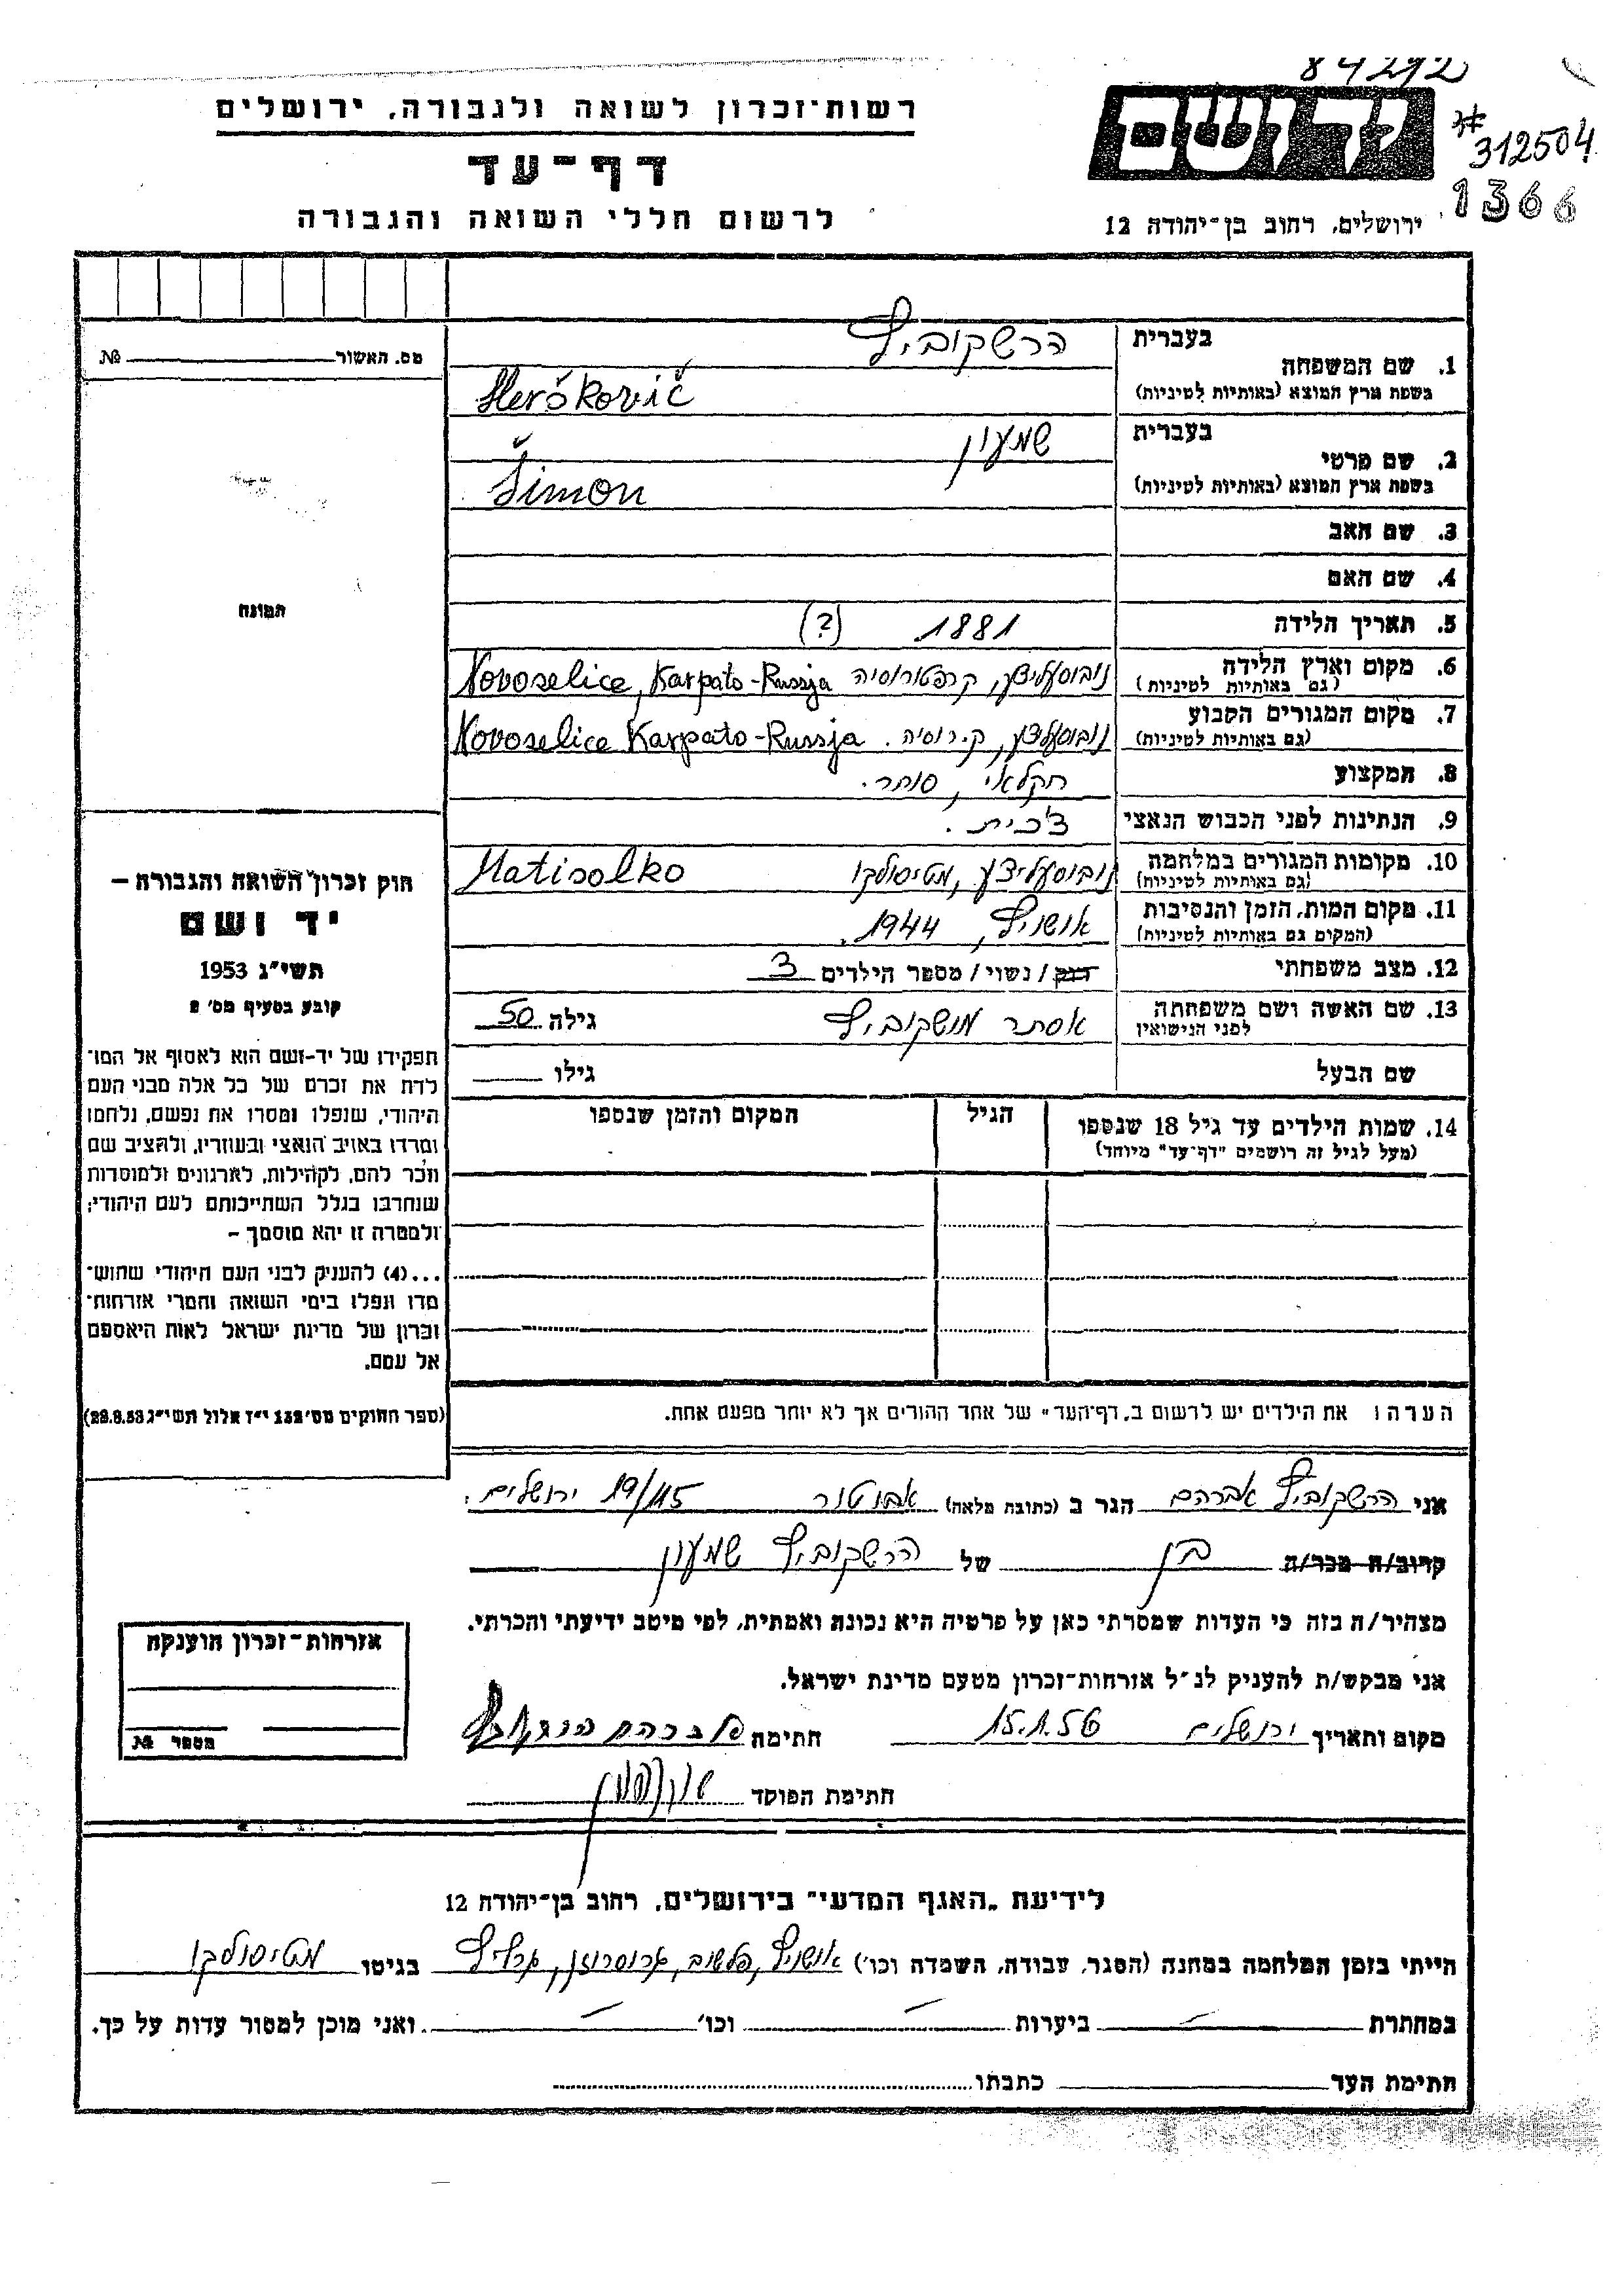 84292
רשות-זכרון לשואה ולגבורה, ירושלים
דף-עד
לרשום חללי השואה והגבורה
ידושם
*312504
1366
ירושלים, רחוב בן-יהודה 12
מס. האשור № 
התמונה
1. שם המשפחה
בעברית הרשקוביץ
בשפת ארץ המוצא (באותיות לטיניות) Herškovič
2. שם פרטי
בעברית שמעון
בשפת ארץ המוצא (באותיות לטיניות) Šimon
3. שם האב
4. שם האם
5. תאריך הלידה 1881 (?)
6. מקום וארץ הלידה נובוסעליצע, קרפטורוסיה Novoselice, Karpato-Russja
(גם באותיות לטיניות)
7. מקום המגורים הקבוע נובוסעליצע, ק.רוסיה. Novoselice Karpato-Russja
(גם באותיות לטיניות)
8. המקצוע חקלאי, סוחר.
9. הנתינות לפני הכבוש הנאצי צ'כית.
10. מקומות המגורים במלחמה נובוסעליצע, מטיסולקו Matisolko
(גם באותיות לטיניות)
11. מקום המות, הזמן והנסיבות אושויץ, 1944.
(המקום גם באותיות לטיניות)
12. מצב משפחתי רווק / נשוי / מספר הילדים 3
13. שם האשה ושם משפחתה אסתר מושקוביץ גילה 50
לפני הנישואין
שם הבעל גילו
14. שמות הילדים עד גיל 18 שנספו הגיל המקום והזמן שנספו
(מעל לגיל זה רושמים "דף-עד" מיוחד)
חוק זכרון השואה והגבורה –
יד ושם
תשי"ג 1953
קובע בסעיף מס' 2
תפקידו של יד-ושם הוא לאסוף אל המו-
לדת את זכרם של כל אלה מבני העם
היהודי, שנפלו ומסרו את נפשם, נלחמו
ומרדו באויב הנאצי ובעוזריו, ולהציב שם
וזכר להם, לקהילות, לארגונים ולמוסדות
שנחרבו בגלל השתייכותם לעם היהודי;
ולמטרה זו יהא מוסמך –
...(4) להעניק לבני העם היהודי שהוש-
מדו ונפלו בימי השואה והמרי אזרחות-
זכרון של מדינת ישראל לאות היאספם
אל עמם.
(ספר החוקים מס' 132 י"ז אלול תשי"ג 28.8.53)
הערה: את הילדים יש לרשום ב"דף-העד" של אחד ההורים אך לא יותר מפעם אחת.
אני הרשקוביץ אברהם הגר ב (כתובת מלאה) אבוטור 19/115 ירושלים.
קרוב/ה מכר/ה בן של הרשקוביץ שמעון
מצהיר/ה בזה כי העדות שמסרתי כאן על פרטיה היא נכונה ואמתית, לפי מיטב ידיעתי והכרתי.
אני מבקש/ת להעניק לנ"ל אזרחות-זכרון מטעם מדינת ישראל.
מקום ותאריך ירושלים 15.1.56 חתימה אברהם הרשקוביץ
חתימת הפוקד
אזרחות-זכרון הוענקה
מספר №
לידיעת "האגף המדעי" בירושלים, רחוב בן-יהודה 12
הייתי בזמן המלחמה במחנה (הסגר, עבודה, השמדה וכו') אושויץ, פלשוב, גרוסרוזן, גרליץ בגיטו מטיסולקו
במחתרת – ביערות – וכו' – ואני מוכן למסור עדות על כך.
חתימת העד כתבתו